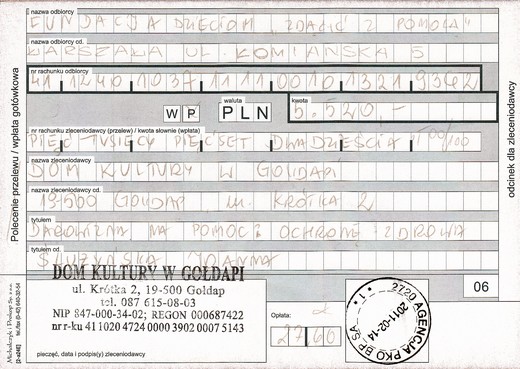 nazwa odbiorcy
FUNDACJA DZIECIOM "ZDĄŻYĆ Z POMOCĄ"
nazwa odbiorcy cd.
WARSZAWA UL. ŁOMIAŃSKA 5
nr rachunku odbiorcy
41 1240 1037 1111 0010 1321 9362
W P
waluta
PLN
kwota
5.520,-
nr rachunku zleceniodawcy (przelew) / kwota słownie (wpłata)
PIĘĆ TYSIĘCY PIĘĆSET DWADZIEŚCIA 00/100
nazwa zleceniodawcy
DOM KULTURY W GOŁDAPI
nazwa zleceniodawcy cd.
19-500 GOŁDAP UL. KRÓTKA 2
tytułem
DAROWIZNA NA POMOC I OCHRONĘ ZDROWIA
tytułem cd.
JOANNA
DOM KULTURY W GOŁDAPI
ul. Krótka 2, 19-500 Gołdap
tel. 087 615-08-03
NIP 847-000-34-02; REGON 000687422
nr r-ku 41 1020 4724 0000 3902 0007 5143
pieczęć, data i podpis(y) zleceniodawcy
Opłata:
27,60
06
2720 AGENCJA PKO BP SA
2011-02-14
* 1 *
Polecenie przelewu / wpłata gotówkowa
odcinek dla zleceniodawcy